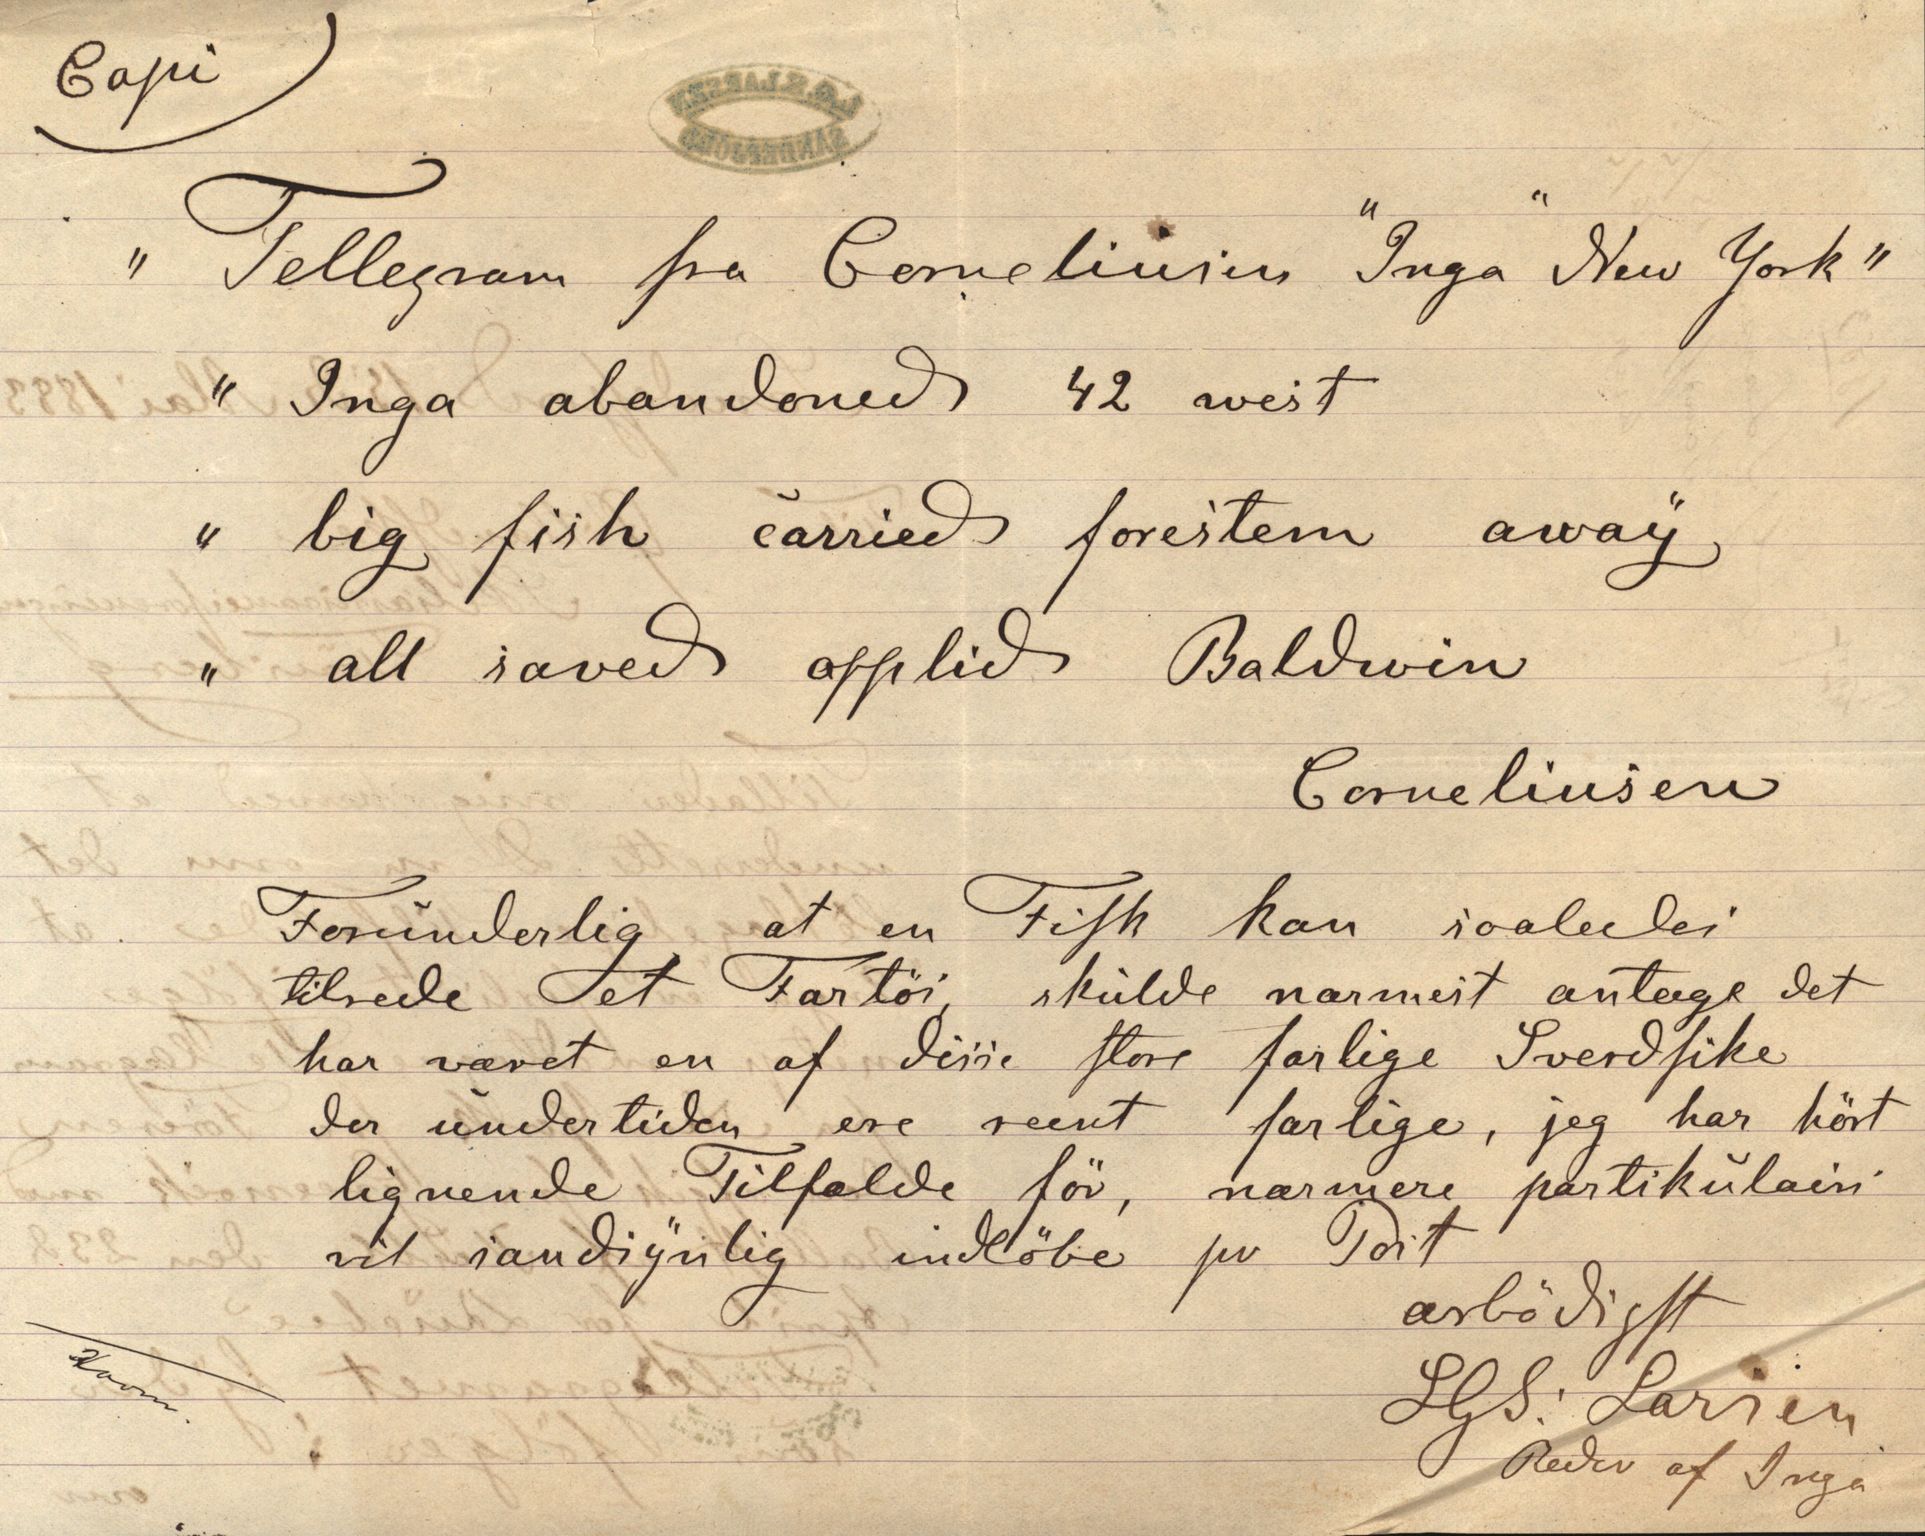 Copi
" Tellegram fra Corneliusen "Inga" New York"
" Inga abandoned 42 west
" big fish carried forestem away
" all saved applid Baldwin
Corneliusen
Foründerlig at en Fisk kan saaledes
tilrede et Fartöi, skülde nærmest antage det
har været en af disse store farlige Sverdfiske
der ündertiden ere reent farlige, jeg har hört
lignende Tilfælde för, nærmere partikülairs
vil sandsÿnlig indlöbe pr Post
ærbödigst
LGS: Larsen
Reder af Inga